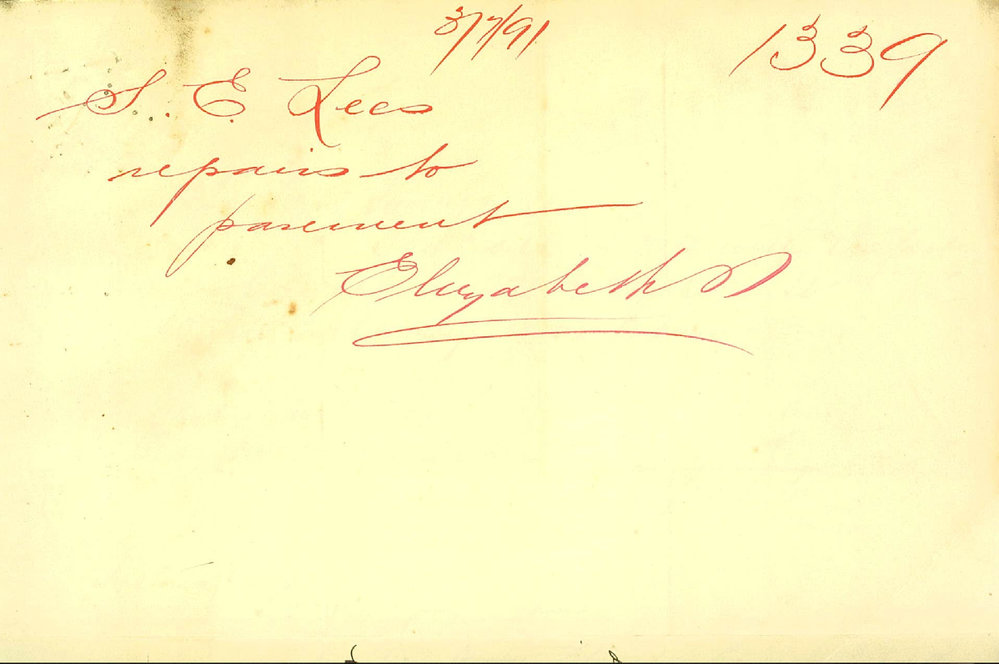 3/7/91
1339
S. E. Lees
repairs to
pavement
Elizabeth S